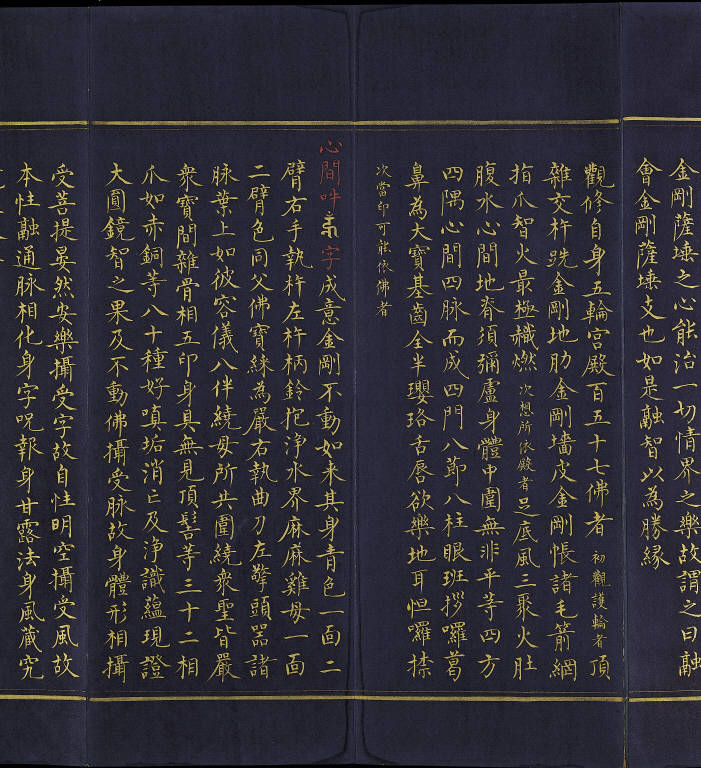 金剛薩埵之心能治一切情界之樂故謂之曰融
會金剛薩埵支也如是融智以為勝緣
觀修自身五輪宮殿百五十七佛者初觀護輪者頂
雜交杵跣金剛地肋金剛墻皮金剛帳諸毛箭網
指爪智火最極熾燃次想所依殿者足底風三聚火肚
腹水心間地脊須彌盧身體中圍無非平等四方
四隅心間四脉而成四門八節八柱眼班拶囉葛
鼻為大寶基齒全半瓔珞舌唇欲樂地耳怛囉㮈
次當印可能依佛者
心間吽字成意金剛不動如来其身青色一面二
臂右手執杵左杵柄鈴抱淨水界麻麻雞母一面
二臂色同父佛寶縁為嚴右執曲刀左擎頭器諸
脉葉上如彼容儀八伴繞母所共圍繞衆聖皆嚴
衆寶間雜骨相五印身具無見頂髻等三十二相
爪如赤銅等八十種好嗔垢消亡及淨識蘊現證
大圓鏡智之果及不動佛攝受脉故身體形相攝
受菩提晏然安樂攝受字故自性明空攝受風故
本性融通脉相化身字呪報身甘露法身風藏究